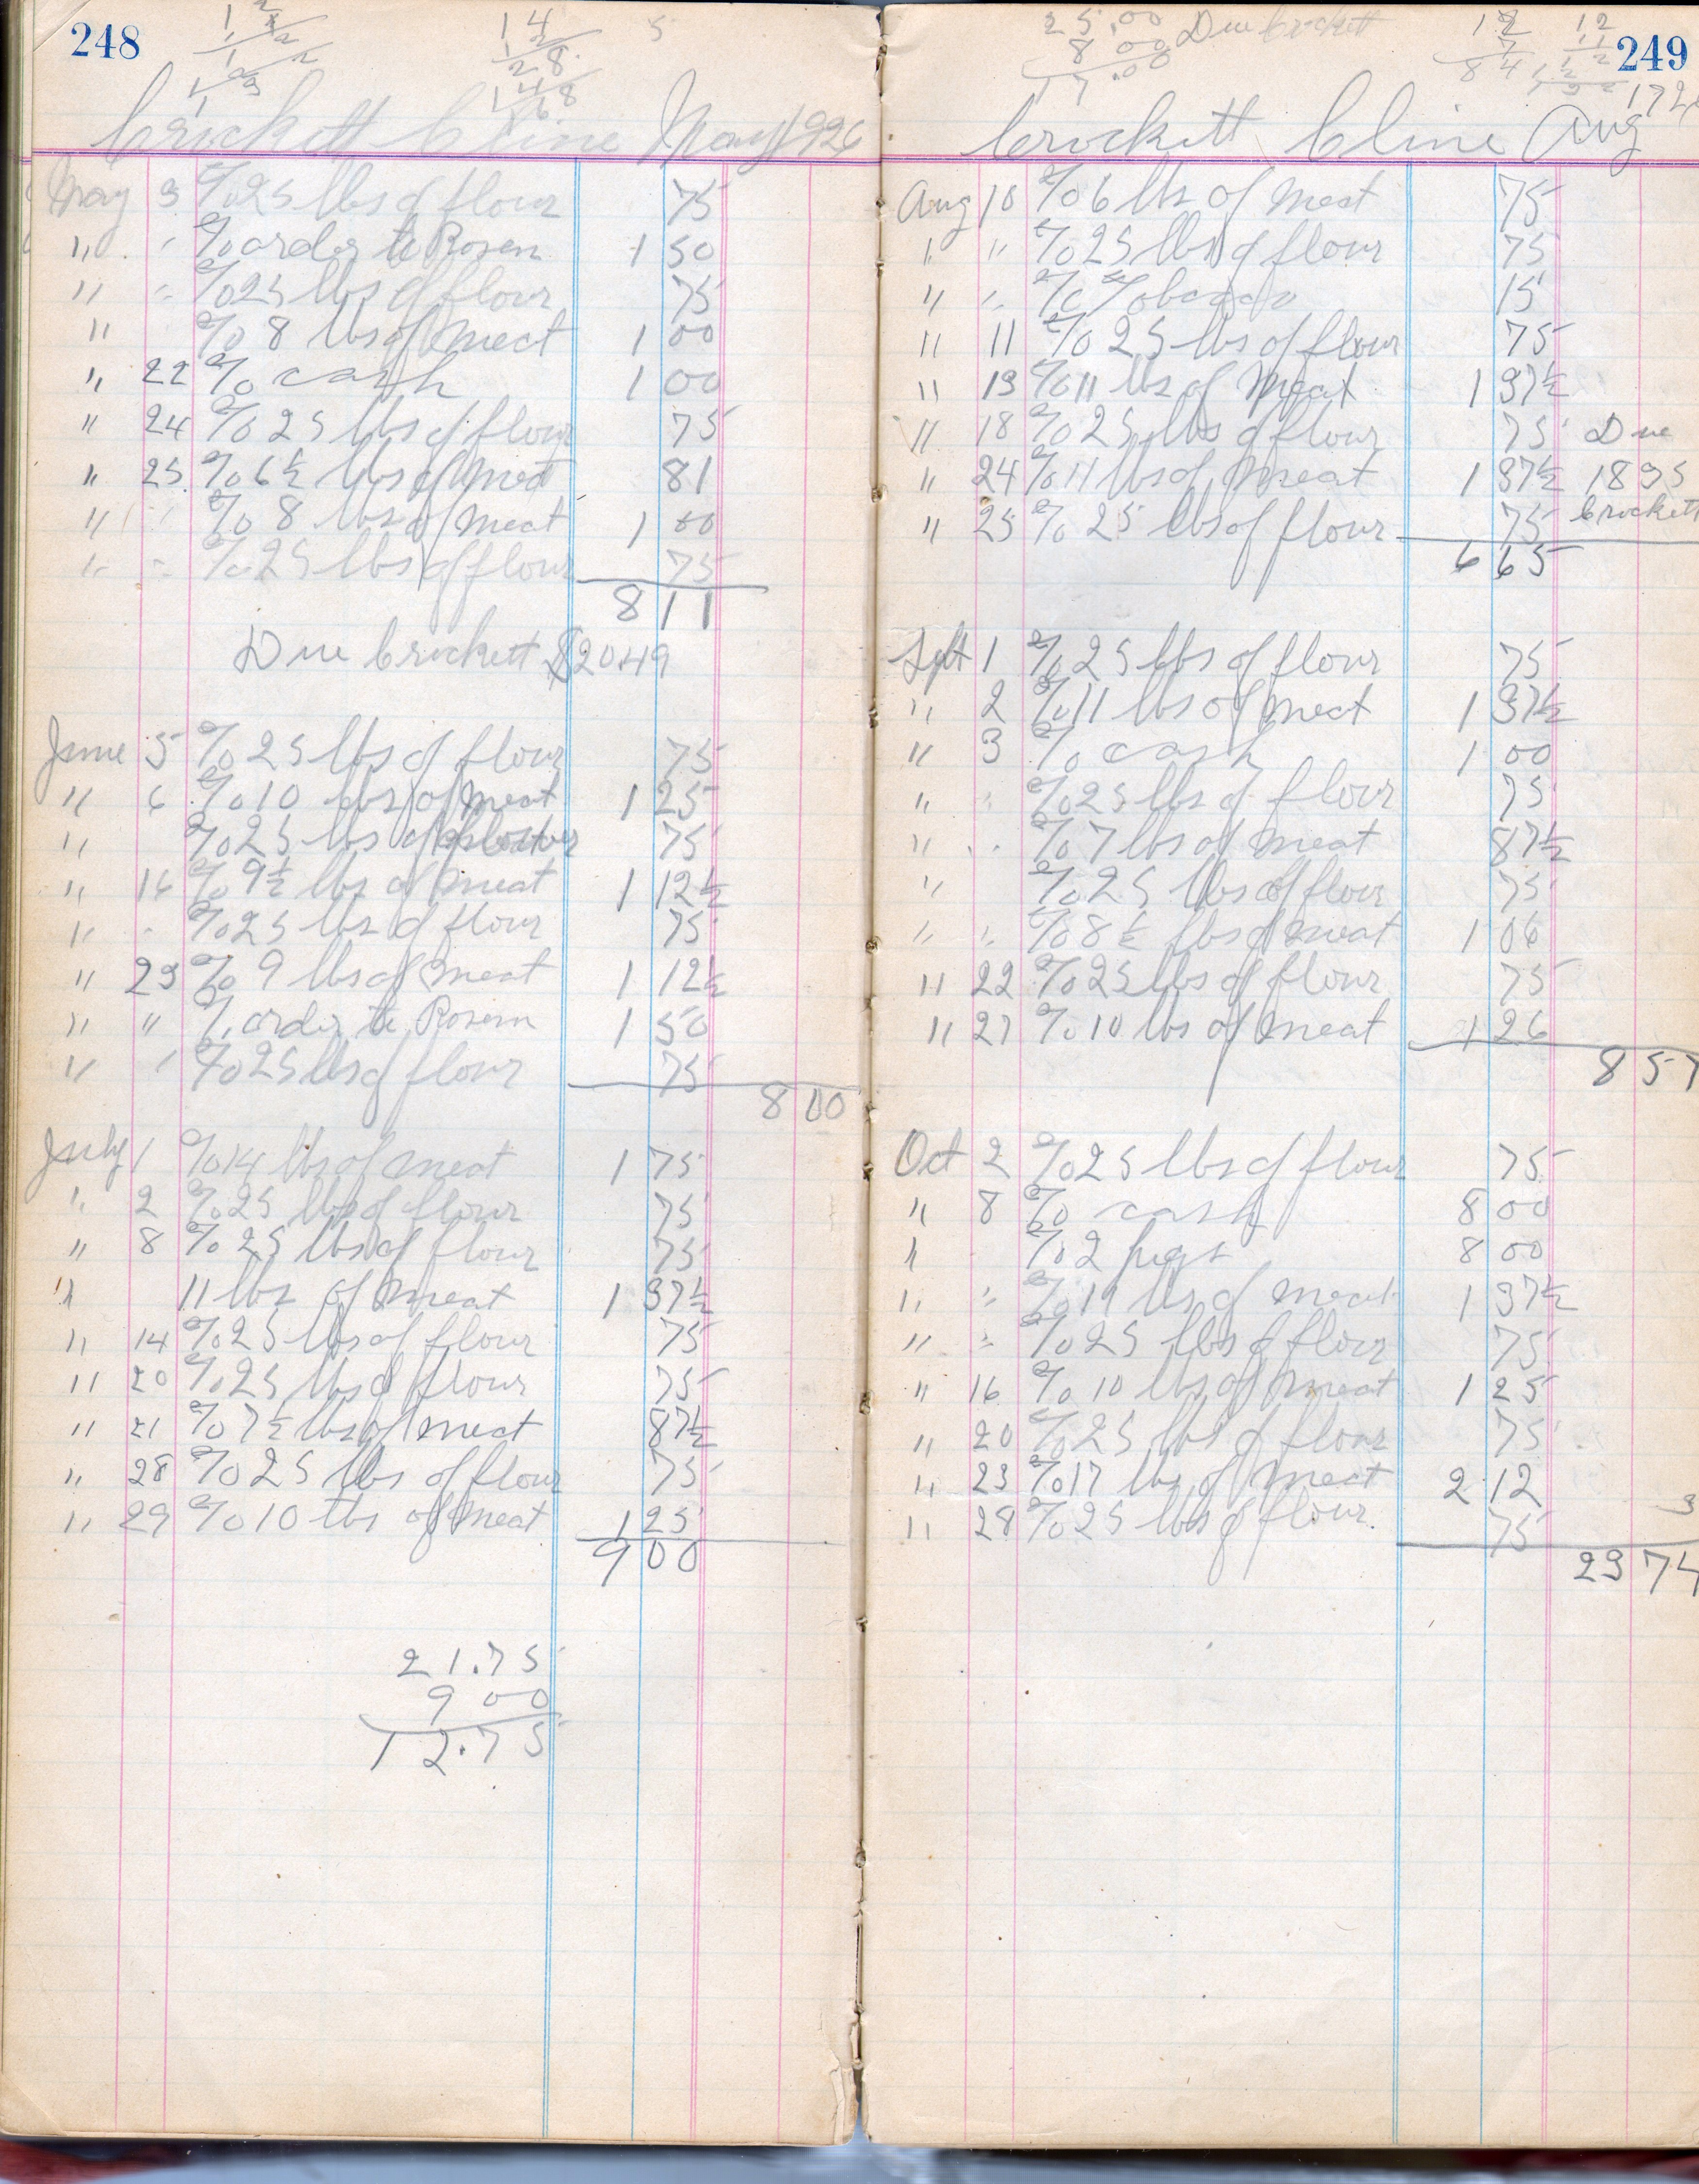 248
14
5
Crockett Cline May 1926
May 3 % 25 lbs of flour 75
" " % order to Rosen 1 50
" " % 25 lbs of flour 75
" % 8 lbs of meat 1 00
" 22 % cash 1 00
" 24 % 25 lbs of flour 75
" 25 % 6½ lbs of meat 81
" " % 8 lbs of meat 1 00
" " % 25 lbs of flour 75
8 11
Due Crockett $20.49
June 5 % 25 lbs of flour 75
" 6 % 10 lbs of meat 1 25
" % 25 lbs of flour 75
" 16 % 9½ lbs of meat 1 12½
" " % 25 lbs of flour 75
" 23 % 9 lbs of meat 1 12½
" " % order to Rosen 1 50
" " % 25 lbs of flour 75
8 00
July 1 % 14 lbs of meat 1 75
" 2 % 25 lbs of flour 75
" 8 % 25 lbs of flour 75
" 11 lbs of meat 1 37½
" 14 % 25 lbs of flour 75
" 20 % 25 lbs of flour 75
" 21 % 7½ lbs of meat 87½
" 28 % 25 lbs of flour 75
" 29 % 10 lbs of meat 1 25
9 00
21.75
9 00
12.75
25.00 Due Crockett
8 00
17.00
12
7
84
249
Crockett Cline Aug
Aug 10 % 6 lbs of meat 75
" " % 25 lbs of flour 75
" " % tobacco 15
" 11 % 25 lbs of flour 75
" 13 % 11 lbs of meat 1 37½
" 18 % 25 lbs of flour 75 Due
" 24 % 11 lbs of meat 1 37½ 18 35
" 25 % 25 lbs of flour 75 Crockett
6 65
Sept 1 % 25 lbs of flour 75
" 2 % 11 lbs of meat 1 37½
" 3 % cash 1 00
" " % 25 lbs of flour 75
" " % 7 lbs of meat 87½
" % 25 lbs of flour 75
" " % 8½ lbs of meat 1 06
" 22 % 25 lbs of flour 75
" 27 % 10 lbs of meat 1 26
8 57
Oct 2 % 25 lbs of flour 75
" 8 % cash 8 00
" % 2 pigs 8 00
" " % 11 lbs of meat 1 37½
" " % 25 lbs of flour 75
" 16 % 10 lbs of meat 1 25
" 20 % 25 lbs of flour 75
" 23 % 17 lbs of meat 2 12
" 28 % 25 lbs of flour 75
3
23 74